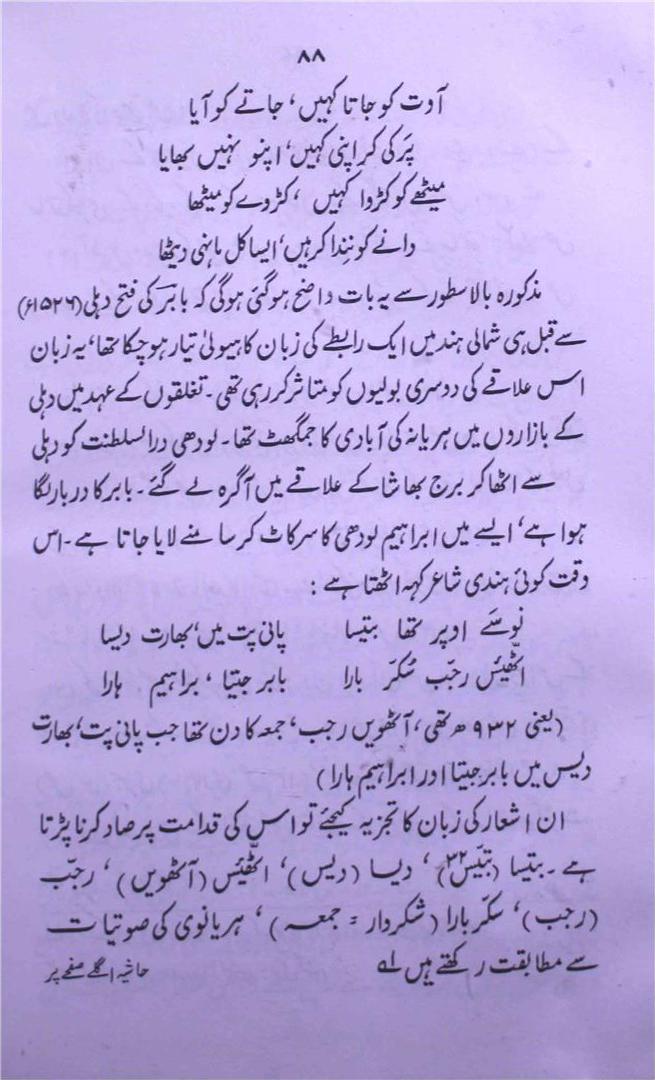 ۸۸
آوت کو جاتا کہیں، جاتے کو آیا
پَر کی کر اپنی کہیں، اپنو نہیں بھایا
میٹھے کو کڑوا کہیں، کڑوے کو میٹھا
دانے کو نِندا کرہیں، ایسا کل ماہنی دیٹھا
مذکورہ بالا سطور سے یہ بات واضح ہو گئی ہوگی کہ بابر کی فتح دہلی (۱۵۲۶ء)
سے قبل ہی شمالی ہند میں ایک رابطے کی زبان کا ہیولیٰ تیار ہو چکا تھا، یہ زبان
اس علاقے کی دوسری بولیوں کو متاثر کر رہی تھی۔ تغلقوں کے عہد میں دہلی
کے بازاروں میں ہریانہ کی آبادی کا جمگھٹ تھا۔ لودھی درالسلطنت کو دہلی
سے اٹھا کر برج بھاشا کے علاقے میں آگرہ لے گئے۔ بابر کا دربار لگا
ہوا ہے، ایسے میں ابراہیم لودھی کا سر کاٹ کر سامنے لایا جاتا ہے۔ اس
وقت کوئی ہندی شاعر کہہ اٹھتا ہے:
نوسَے اوپر تھا بتیسا پانی پت میں، بھارت دیسا
اٹھیٔس رجّب سُکّر بارا بابر جیتا، براہیم ہارا
(یعنی ۹۳۲ھ تھی، آٹھویں رجب، جمعہ کا دن تھا جب پانی پت، بھارت
دیس میں بابر جیتا اور ابراہیم ہارا)
ان اشعار کی زبان کا تجزیہ کیجئے تو اس کی قدامت پر صاد کرنا پڑتا
ہے۔ بتیسا (بتّیس ۳۲)، دیسا (دیس)، اٹھیٔس (آٹھویں)، رجّب
(رجب)، سکّر بارا (شکر دار = جمعہ)، ہریانوی کی صوتیات
سے مطابقت رکھتے ہیں لہ
حاشیہ اگلے صفحے پر